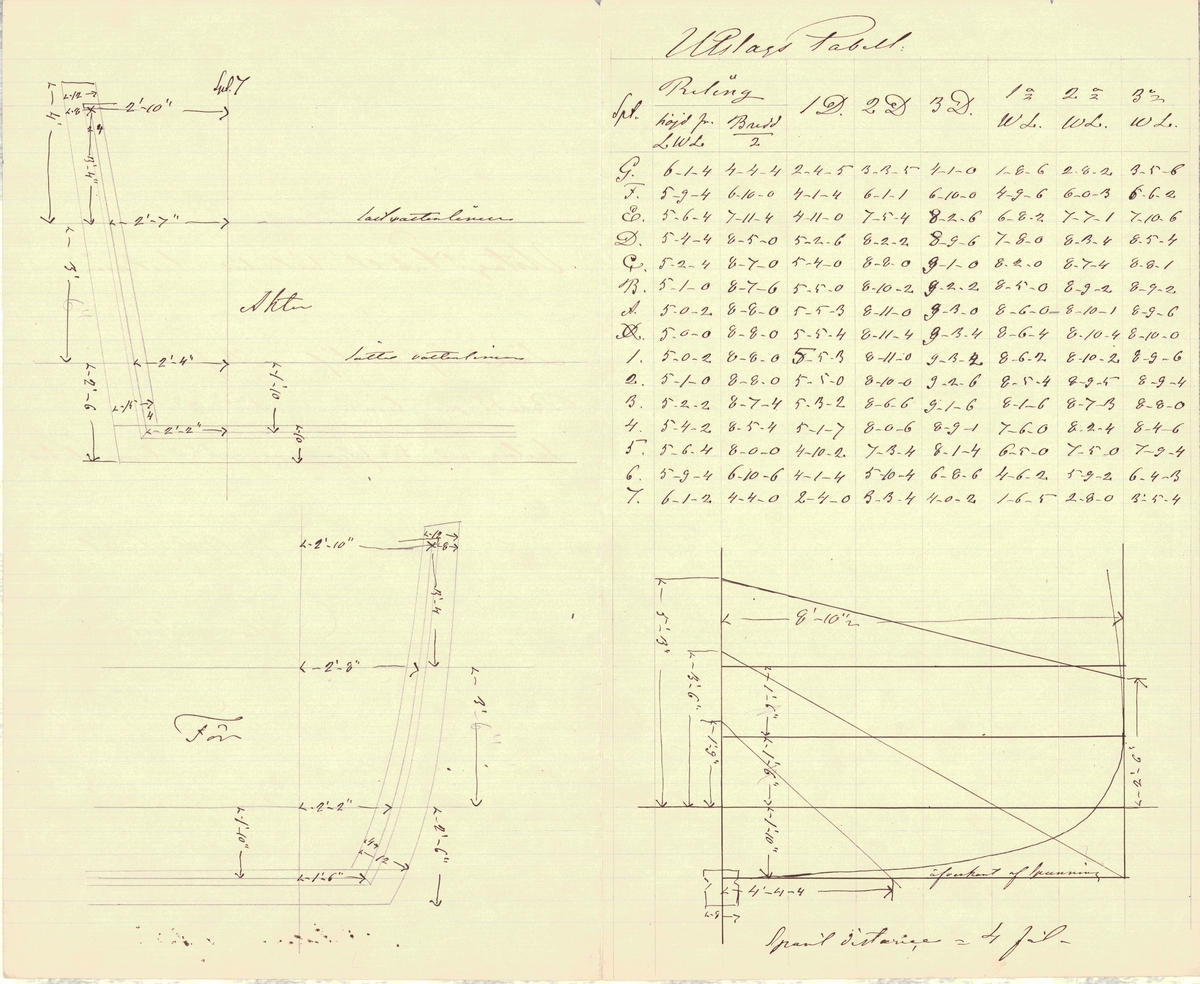 Utslags Tabell:
Spt. Reling 1 D. 2 D 3 D. 1a/2 2a/2 3a/2
höjd fr. L.W.L. Bredd/2 W L. W L. W L.
G. 6-1-4 4-4-4 2-4-5 3-3-5 4-1-0 1-8-6 2-8-2 3-5-6
F. 5-9-4 6-10-0 4-1-4 6-1-1 6-10-0 4-9-6 6-0-3 6-6-2
E. 5-6-4 7-11-4 4-11-0 7-5-4 8-2-6 6-8-2 7-7-1 7-10-6
D. 5-4-4 8-5-0 5-2-6 8-2-2 8-9-6 7-8-0 8-3-4 8-5-4
C. 5-2-4 8-7-0 5-4-0 8-8-0 9-1-0 8-2-0 8-7-4 8-8-1
B. 5-1-0 8-7-6 5-5-0 8-10-2 9-2-2 8-5-0 8-9-2 8-9-2
A. 5-0-2 8-8-0 5-5-3 8-11-0 9-3-0 8-6-0 8-10-1 8-9-6
5-0-0 8-8-0 5-5-4 8-11-4 9-3-4 8-6-4 8-10-4 8-10-0
1. 5-0-2 8-8-0 5-5-3 8-11-0 9-3-4 8-6-2 8-10-2 8-9-6
2. 5-1-0 8-8-0 5-5-0 8-10-0 9-2-6 8-5-4 8-9-5 8-9-4
3. 5-2-2 8-7-4 5-3-2 8-6-6 9-1-6 8-1-6 8-7-3 8-8-0
4. 5-4-2 8-5-4 5-1-7 8-0-6 8-9-1 7-6-0 8-2-4 8-4-6
5. 5-6-4 8-0-0 4-10-2 7-3-4 8-1-4 6-5-0 7-5-0 7-9-4
6. 5-9-4 6-10-6 4-1-4 5-10-4 6-8-6 4-6-2 5-9-2 6-4-3
7. 6-1-2 4-4-0 2-4-0 3-3-4 4-0-2 1-6-5 2-8-0 3-5-4
Spt. 7
12
8
2'-10"
4'
4
3'-4"
2'-7"
lastvattenlinien
3'-6"
Akter
2'-4"
lätta vattenlinien
2'-6
1'-10
4
2'-2"
10
12
2'-10"
8
3'-4
2'-8"
3'-6"
För
2'-2"
1'-10"
2'-6"
4
12
1'-6"
8'-10"½
5'-3"
3'-6"
1'-6"
1'-9"
1'-6"
2'-9"
1'-10"
4'-4-4
8
öfverkant af Spunning
Spant distance = 4 fot